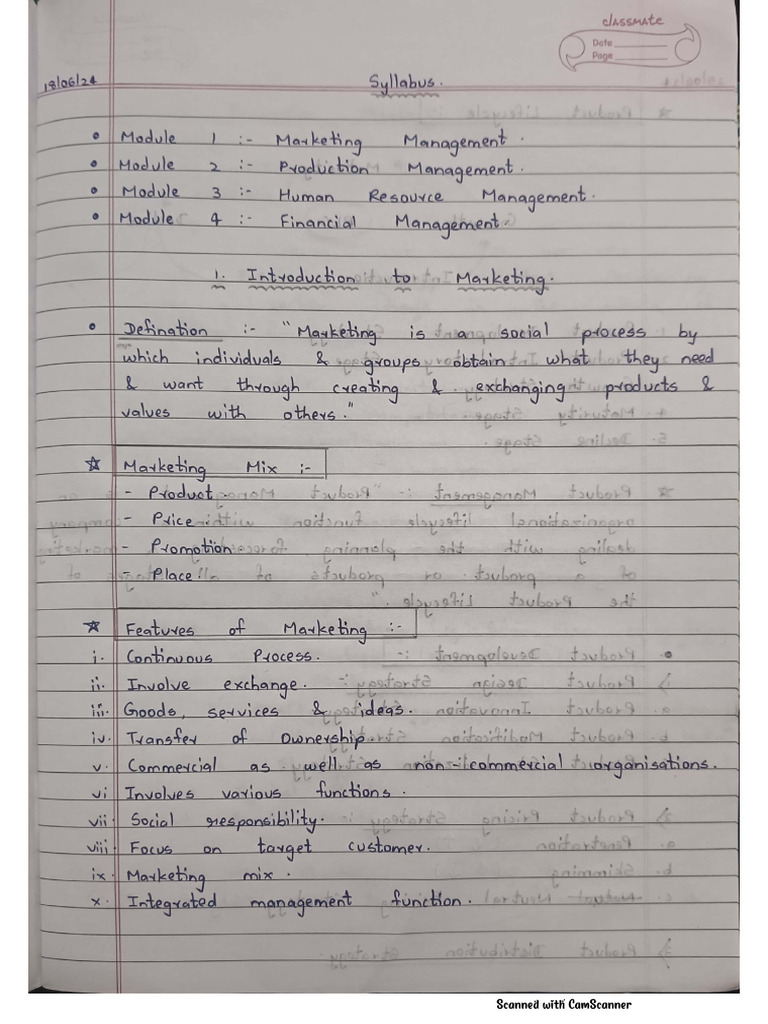 classmate
Date
Page
18/06/24
Syllabus.
• Module 1 :- Marketing Management.
• Module 2 :- Production Management.
• Module 3 :- Human Resource Management.
• Module 4 :- Financial Management.
1. Introduction to Marketing.
• Defination :- "Marketing is a social process by
which individuals & groups obtain what they need
& want through creating & exchanging products &
values with others."
☆ Marketing Mix :-
- Product
- Price
- Promotion
- Place
☆ Features of Marketing :-
i. Continuous Process.
ii. Involve exchange.
iii. Goods, services & ideas.
iv. Transfer of Ownership.
v. Commercial as well as non-commercial organisations.
vi Involves various functions.
vii. Social responsibility.
viii. Focus on target customer.
ix. Marketing mix.
x. Integrated management function.
Scanned with CamScanner